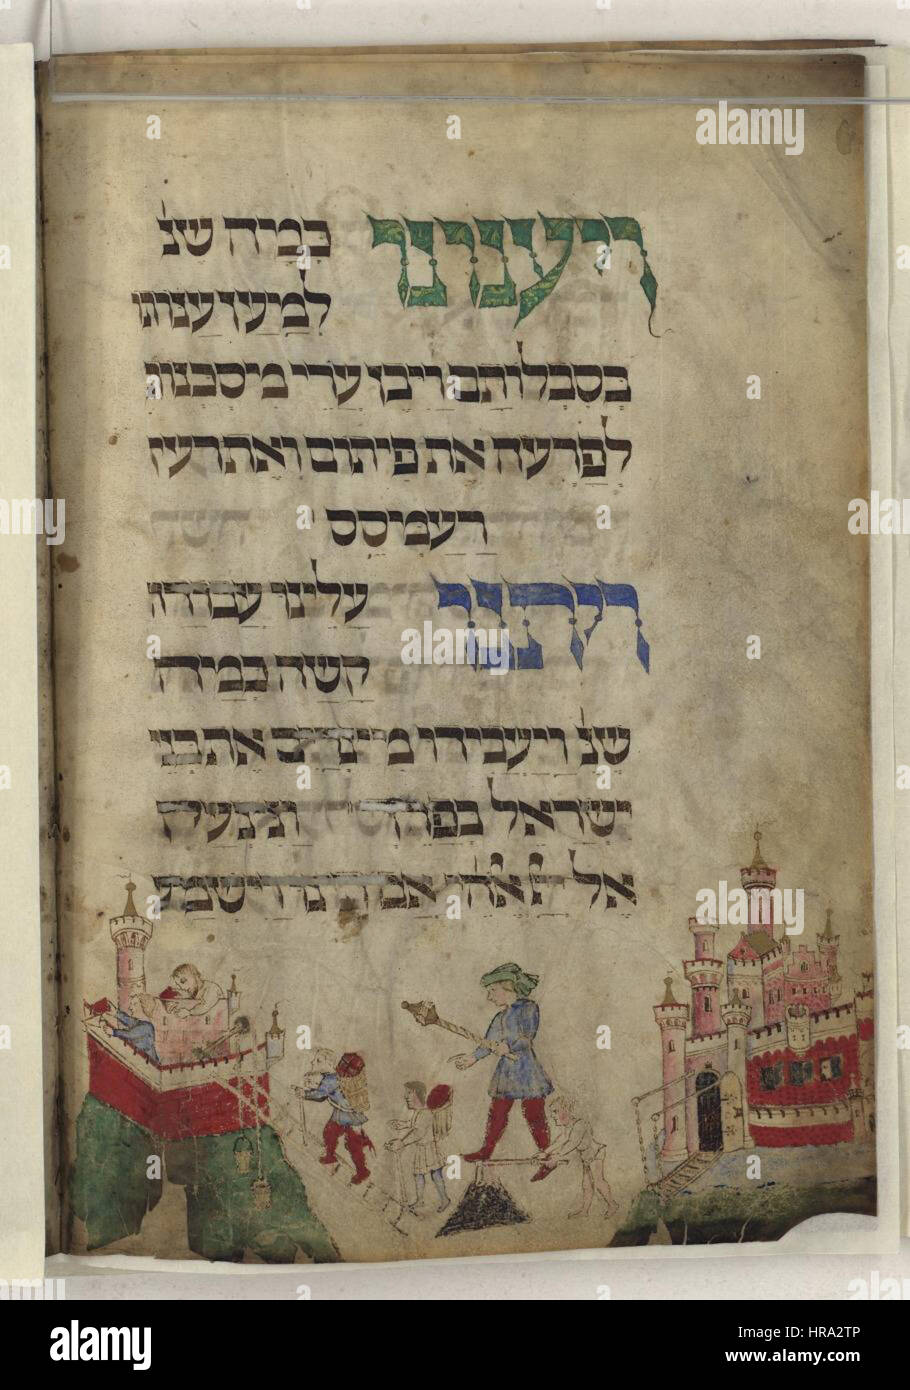 ויענונו כמה שנ'
למען ענותו
בסבלותם ויבן ערי מיסכנות
לפרעה את פיתום ואת
רעמיסס
ויתנו עלינו עבודה
קשה כמה
שנ' ויעבידו מצרים את בני
ישראל בפרך ונצעק
אל אלהי אבותינו וישמע
alamy
HRA2TP
www.alamy.com